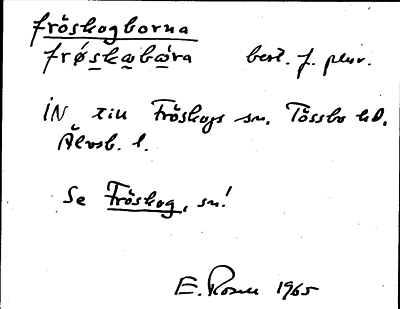 fröskogborna
frøskabǿra best. f. plur.
IN till Fröskogs sn. Tössbo hd.
Älvsb. l.
Se Fröskog, sn!
E. Rosell 1965